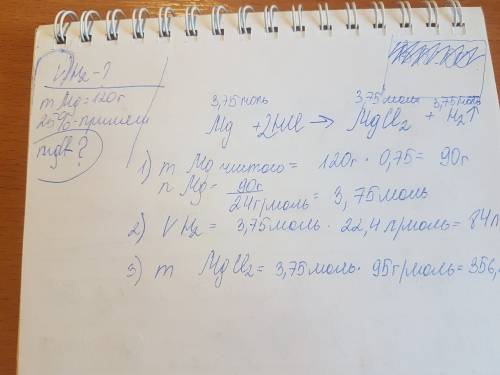 V H₂ - ?
m Mg = 120г
25% - примеси
3,75моль 3,75моль 3,75моль
Mg + 2HCl → MgCl₂ + H₂↑
1) m Mg чистого = 120г · 0,75 = 90г
n Mg = 90г / 24г/моль = 3,75моль
2) V H₂ = 3,75моль · 22,4 л/моль = 84л
3) m MgCl₂ = 3,75моль · 95г/моль = 356,